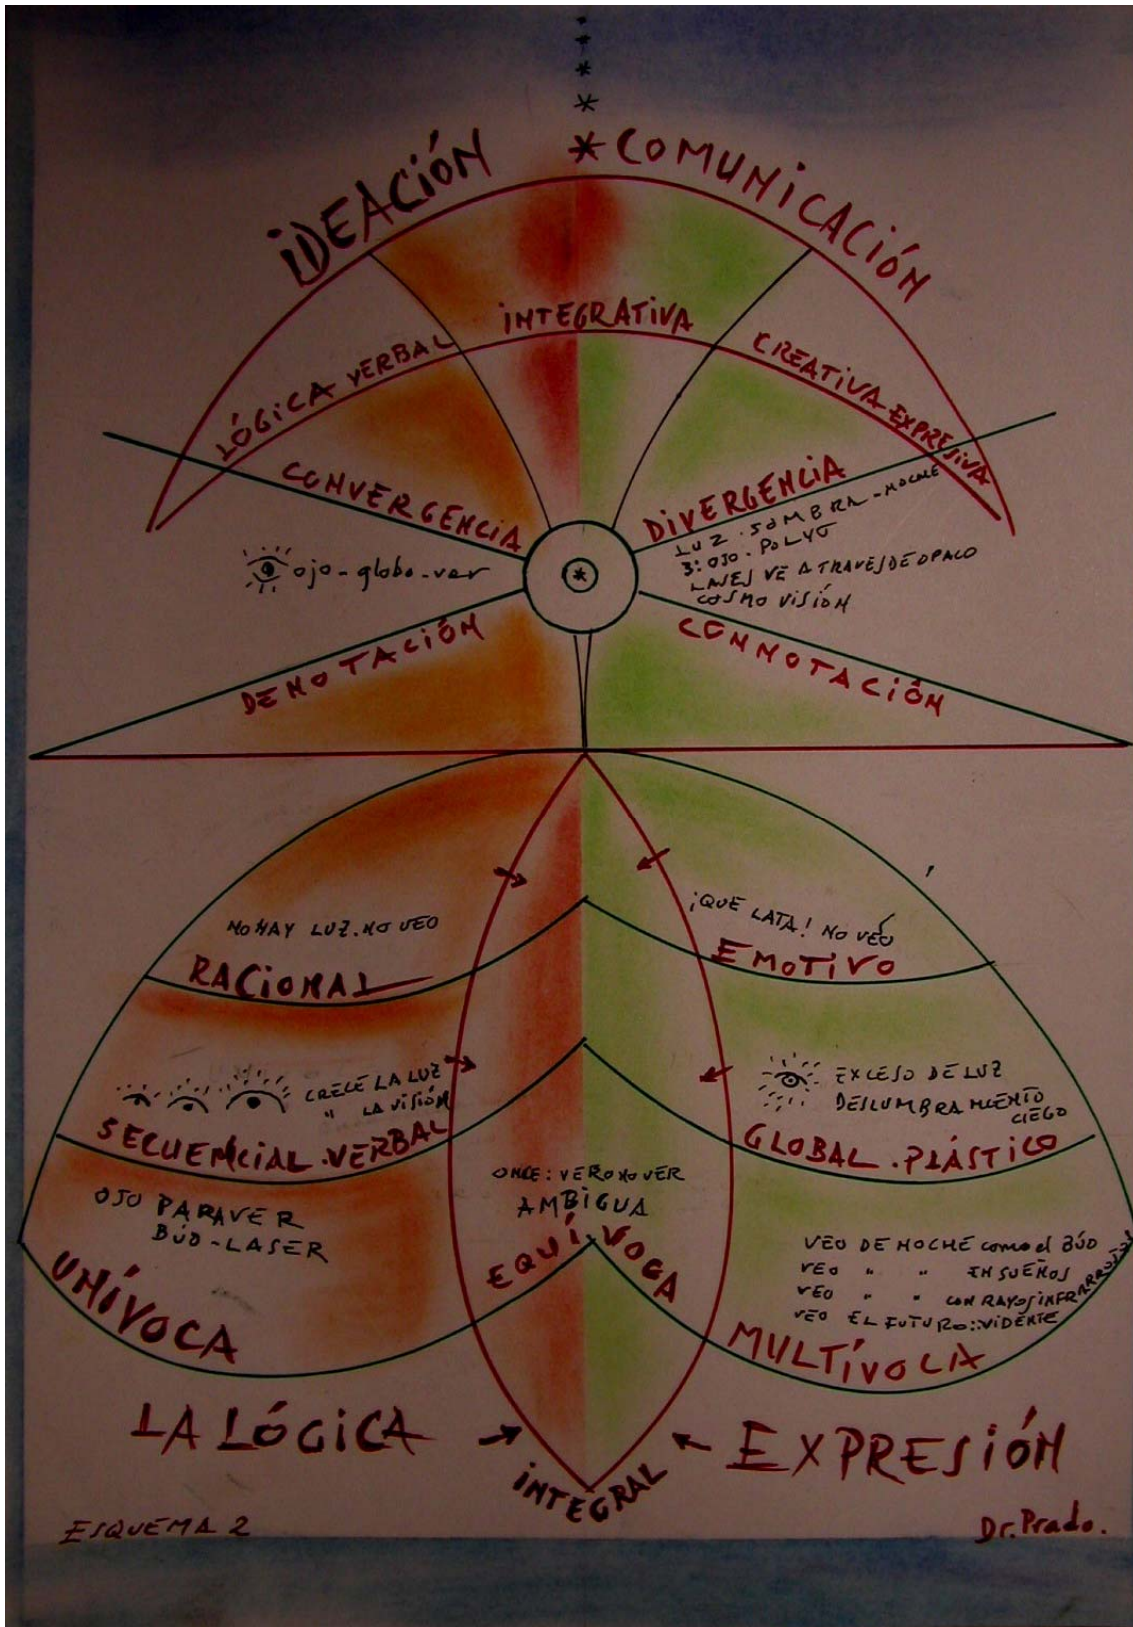 IDEACIÓN * COMUNICACIÓN
INTEGRATIVA
LÓGICA VERBAL
CREATIVA-EXPRESIVA
CONVERGENCIA
DIVERGENCIA
LUZ-SOMBRA-NOCHE
3: OJO-POLYG
LASES VE A TRAVES DE OPACO
COSMO VISIÓN
ojo-globo-ver
DENOTACIÓN
CONNOTACIÓN
NO HAY LUZ. NO VEO
RACIONAL
¡QUE LATA! NO VEO
EMOTIVO
CRECE LA LUZ
" LA VISIÓN
SECUENCIAL-VERBAL
EXCESO DE LUZ
DESLUMBRAMIENTO
CIEGO
GLOBAL-PLÁSTICO
OJO PARA VER
BÚO-LASER
UNÍVOCA
ONCE: VER O NO VER
AMBIGUA
EQUÍVOCA
VEO DE NOCHE como el BÚO
VEO " " EN SUEÑOS
VEO " " CON RAYOS INFRARROJOS
VEO EL FUTURO::VIDENTE
MULTÍVOCA
LA LÓGICA
EXPRESIÓN
INTEGRAL
ESQUEMA 2
Dr. Prado.